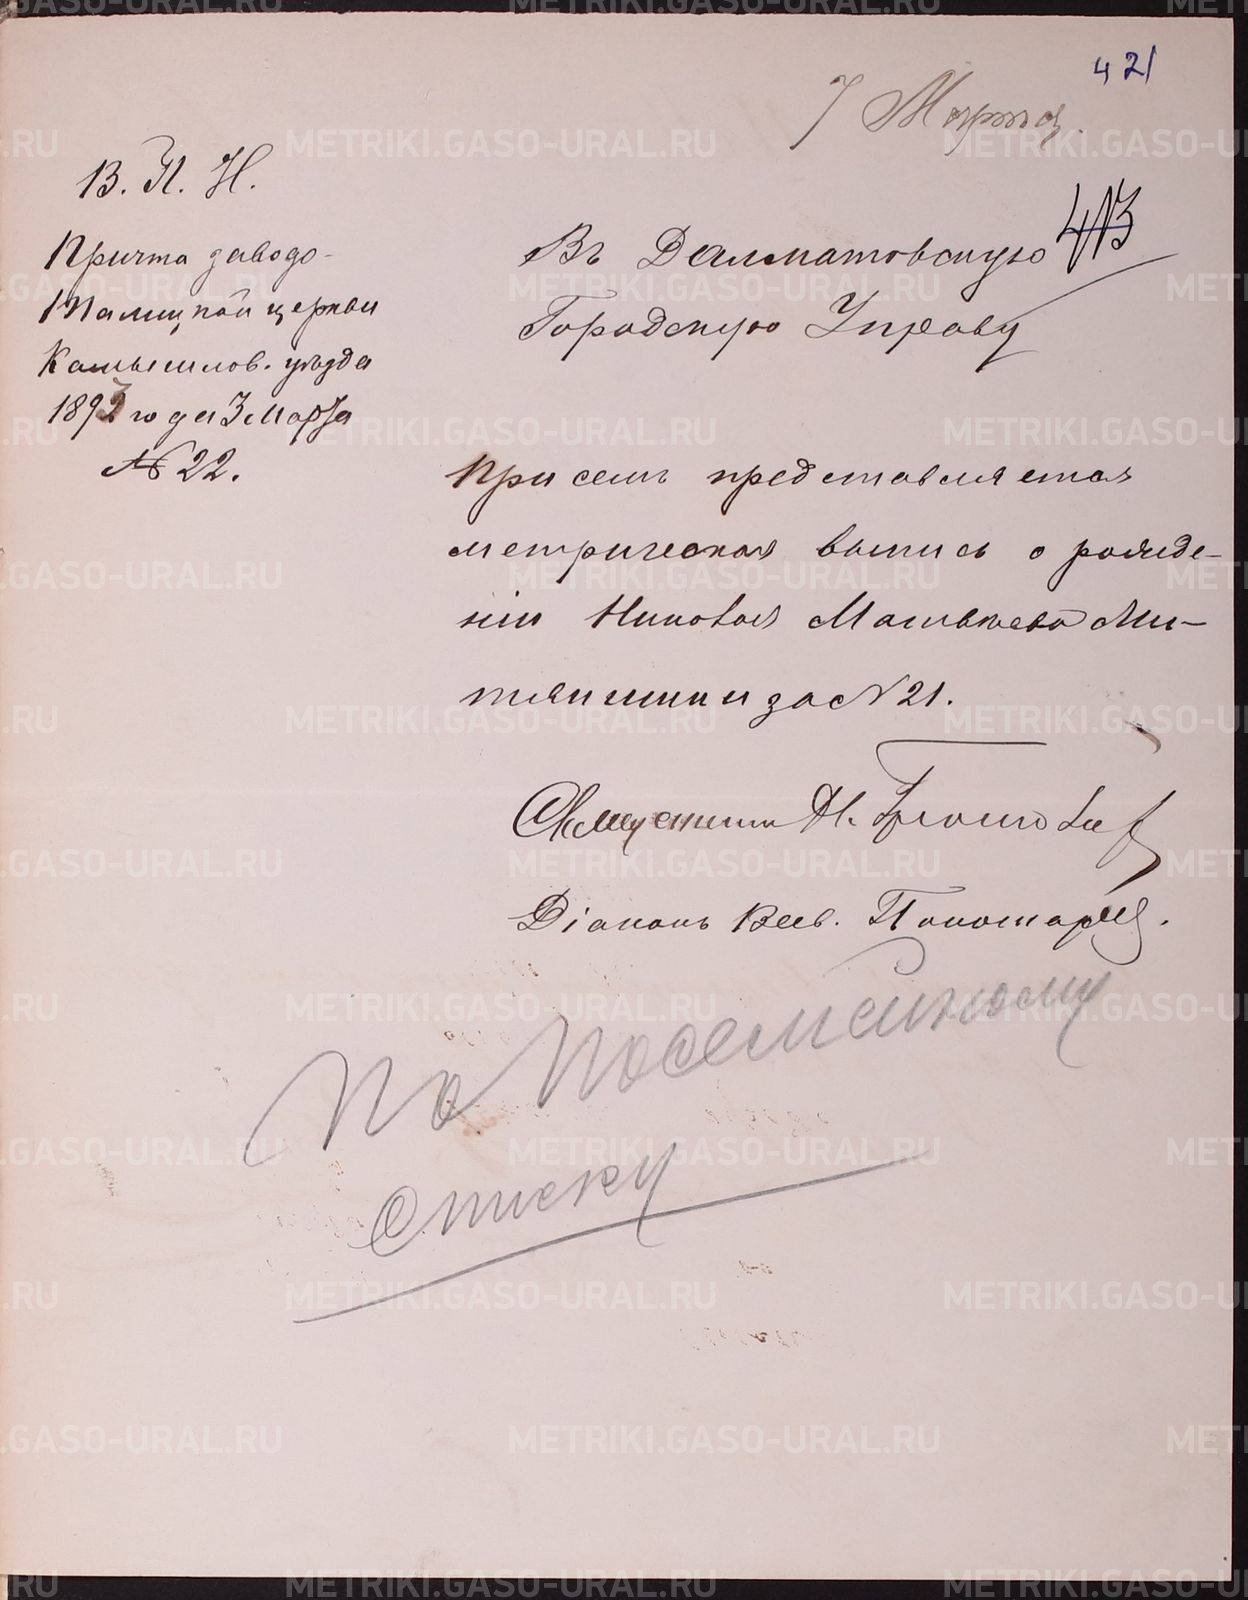 421
7 Марта.
В. П. И.
Причта заводо-
Талицкой церкви
Камышлов. уѣзда
1893 года 3 Марта
№ 22.
413
Въ Далматовскую
Городскую Управу
При семъ представляется
метрическая выпись о рожде-
ніи Николая Матвѣева Ми-
тяшина за № 21.
Священникъ Н.
Діаконъ Всев. Пономаревъ.
По посемейному
списку
METRIKI.GASO-URAL.RU